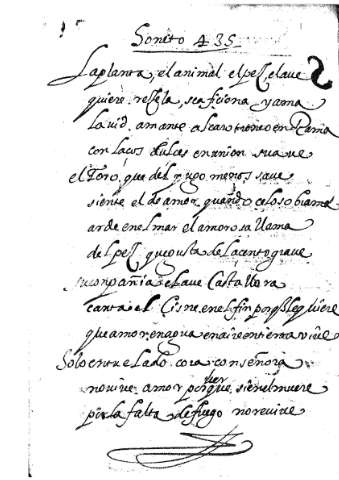 Soneto 435
La planta, el animal, el pez, el ave
quiere, reçela, se aficiona, y ama
La vid, amante al caro tronco en Rama
con laços dulces en union suaue
el Toro, que del yugo menos saue
siente el desamor, quando çeloso brama
arde en el mar el amorosa llama
del pez que gusta de la canto graue
su conpañia el aue Casta llora
canta el Cisne, en el fin porq̃
que amor, en agua en aire en tierra viue
Solo en tu elado coraçon señora
no viue amor porque si en el muere
por la falta de fuego no reuiue